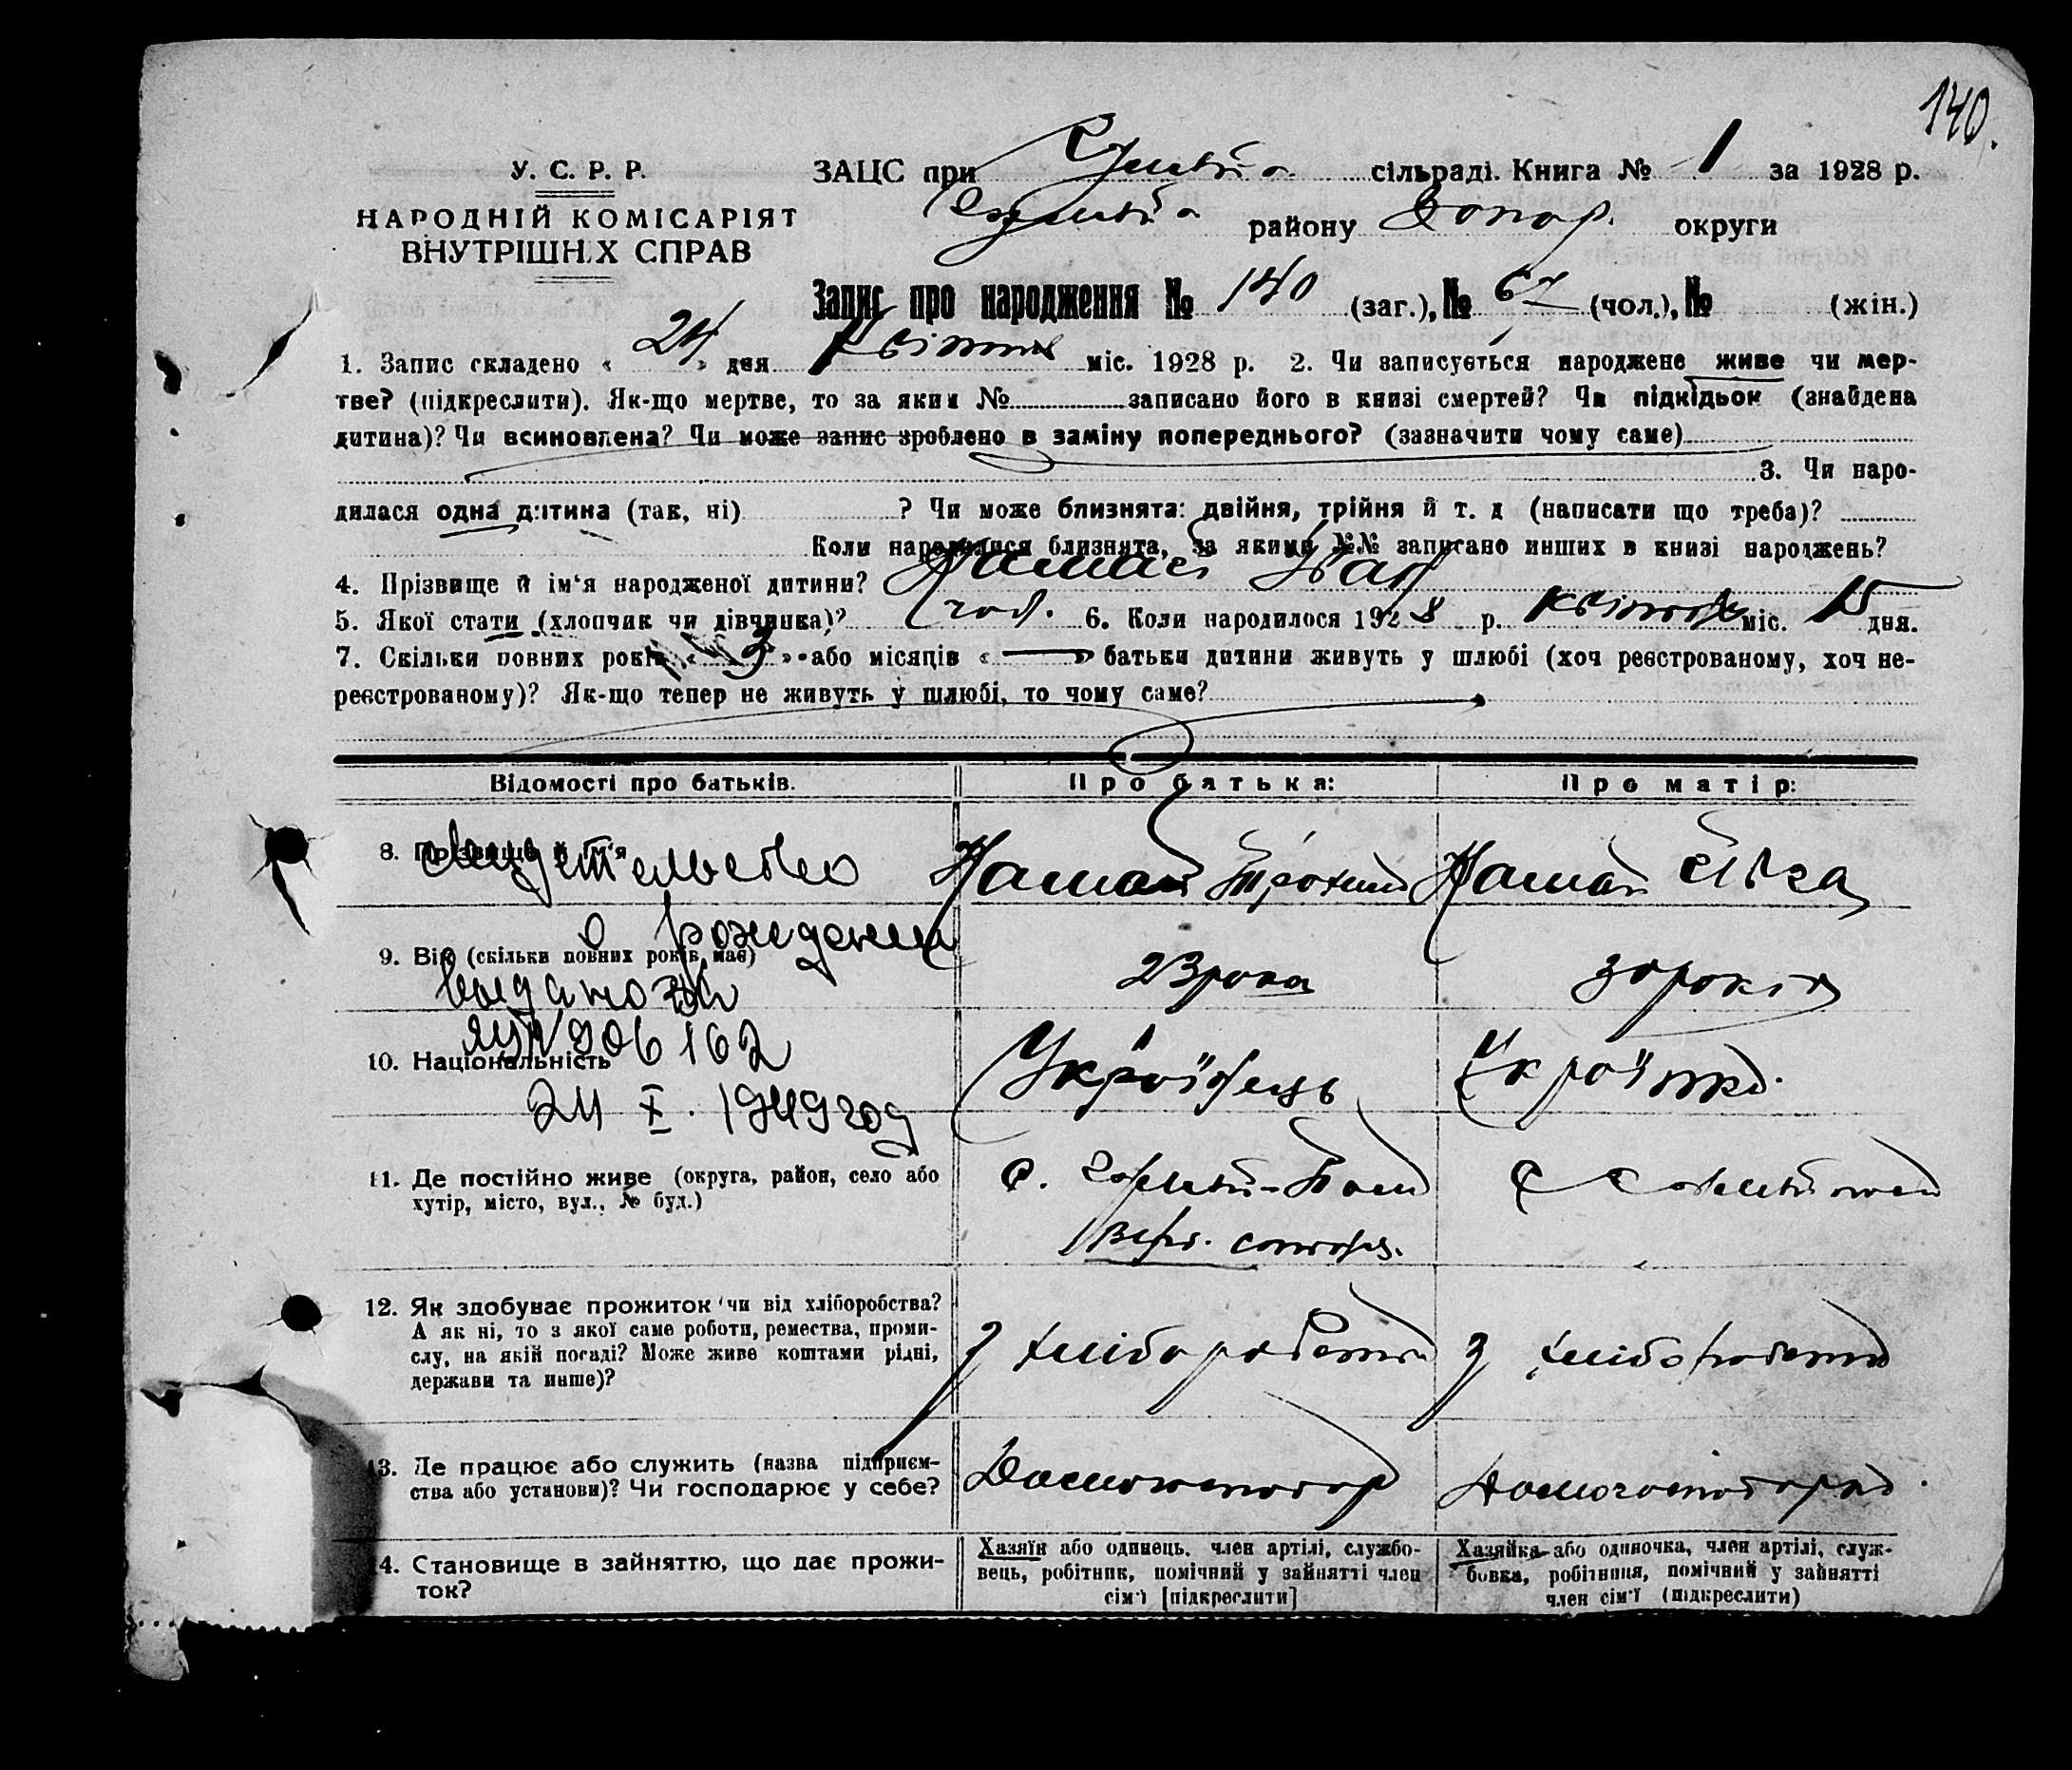 140.
У. С. Р. Р.
НАРОДНІЙ КОМІСАРІЯТ
ВНУТРІШНІХ СПРАВ
ЗАЦС при сільраді. Книга № 1 за 1928 р.
району округи
Запис про народження № 140 (заг.), № 67 (чол.), № (жін.)
1. Запис складено « 24 » дня Квітня міс. 1928 р. 2. Чи записується народжене живе чи мер-
тве? (підкреслити). Як-що мертве, то за яким № записано його в книзі смертей? Чи підкідьок (знайдена
дитина)? Чи всиновлена? Чи може запис зроблено в заміну попереднього? (зазначити чому саме)
3. Чи наро-
дилася одна дитина (так, ні) ? Чи може близнята: двійня, трійня й т. д (написати що треба)?
Коли народилися близнята, за якими №№ записано инших в книзі народжень?
4. Прізвище й ім'я народженої дитини? Іван
5. Якої стати (хлопчик чи дівчинка)? 6. Коли народилося 1928 р. квітня міс. 15 дня.
7. Скільки повних років « 3 » або місяців « — » батьки дитини живуть у шлюбі (хоч реєстрованому, хоч не-
реєстрованому)? Як-що тепер не живуть у шлюбі, то чому саме?
Відомості про батьків. Про батька: Про матір:
8. Прізвище й ім'я
свидетельство
о рождении
9. Вік (скільки повних років має) 23 роки 30 років
выдано за
ЯУ № 906162
10. Національність Українець Українка.
24 X. 1949 год
11. Де постійно живе (округа, район, село або
хутір, місто, вул., № буд.)
12. Як здобуває прожиток чи від хліборобства?
А як ні, то з якої саме роботи, ремества, проми-
слу, на якій посаді? Може живе коштами рідні,
держави та инше)?
з хліборобства з хліборобства
13. Де працює або служить (назва підприєм-
ства або установи)? Чи господарює у себе?
Домогосподар Домогосподарка.
14. Становище в зайняттю, що дає прожи-
ток?
Хазяїн або одинець. член артілі, службо-
вець, робітник, помічний у зайнятті член
сім'ї [підкреслити]
Хазяйка або одиночка, член артілі, служ-
бовка, робітниця, помічний у зайнятті
член сім'ї (підкреслити)